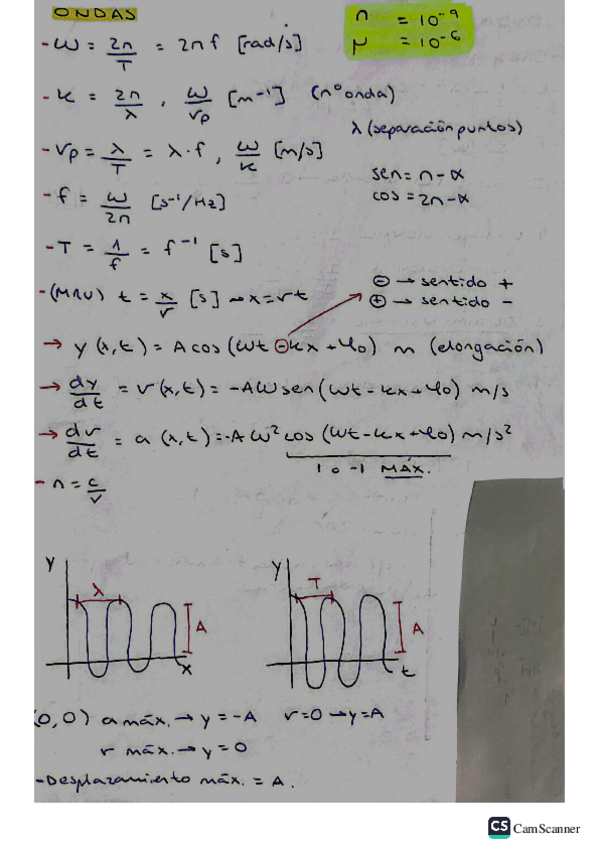 ONDAS
n = 10⁻⁹
μ = 10⁻⁶
- ω = 2π/T = 2πf [rad/s]
- k = 2π/λ , ω/vp [m⁻¹] (nº onda)
λ (separación puntos)
- vp = λ/T = λ·f , ω/k [m/s]
sen = π - α
cos = 2π - α
- f = ω/2π [s⁻¹/Hz]
- T = 1/f = f⁻¹ [s]
- (MRU) t = x/v [s] → x = vt
⊖ → sentido +
⊕ → sentido -
→ y(x,t) = A cos (ωt ⊖ kx + φ0) m (elongación)
→ dy/dt = v(x,t) = -Aω sen (ωt - kx + φ0) m/s
→ dv/dt = a(x,t) = -Aω² cos (ωt - kx + φ0) m/s²
1 o -1 MÁX.
- n = c/v
y λ A x
y T A t
(0,0) a máx. → y = -A v=0 → y=A
v máx. → y = 0
- Desplazamiento máx. = A.
CS CamScanner